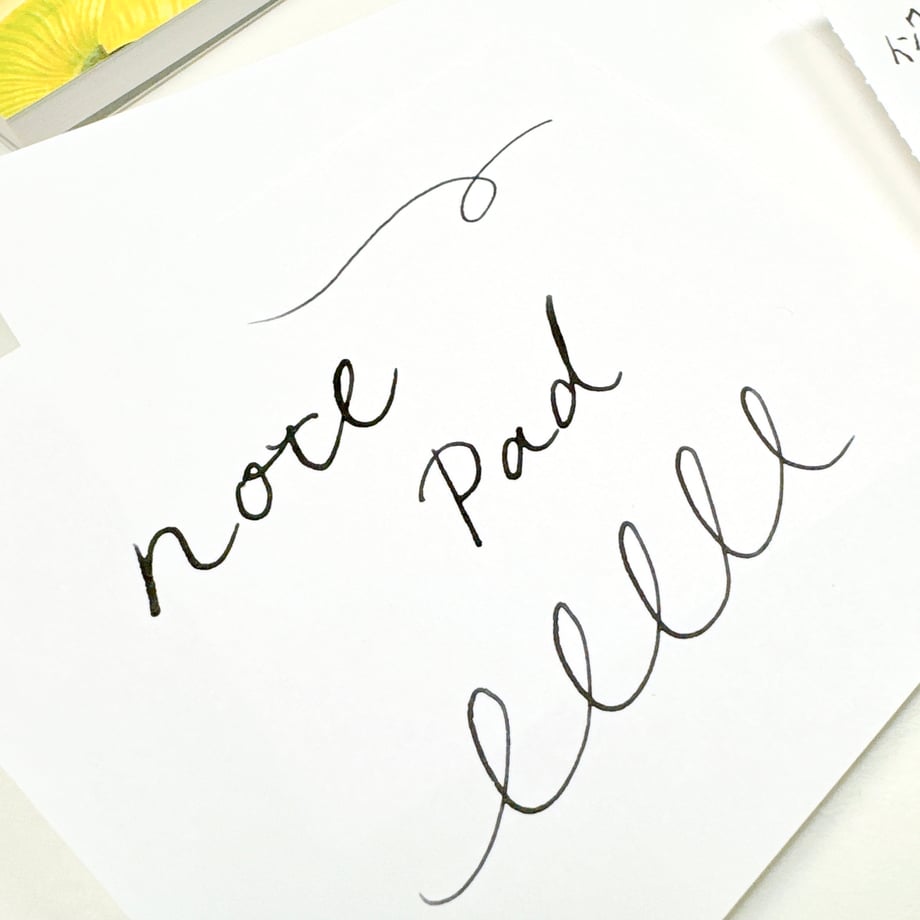 note
Pad